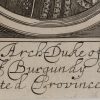 Arch Duke of
Burgundy
ted Province